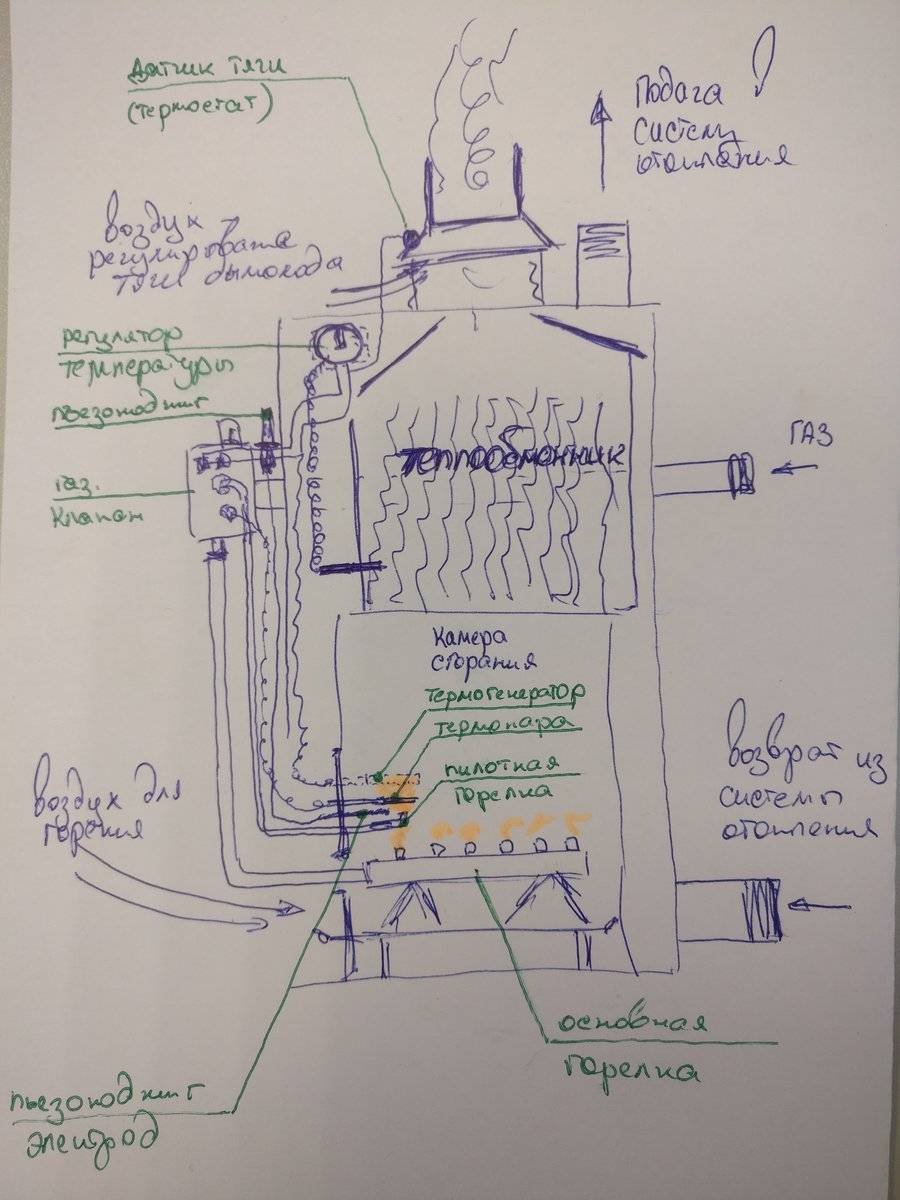 Датчик тяги
(термостат)
Подача
систему
отопления
воздух
регулировата
тяги дымохода
регулятор
температуры
пьезоподжиг
газ.
клапан
теплообменник
ГАЗ
Камера
сгорания
термогенератор
термопара
пилотная
горелка
воздух для
горения
возврат из
системы
отопления
основная
горелка
пьезоподжиг
электрод